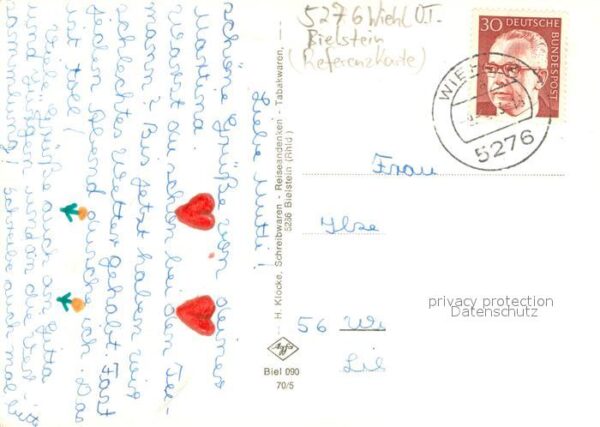 Liebe Mutti!
schöne Grüße von deiner
Martina.
Warst du schon bei den
mann? Bis jetzt haben wir
schlechtes Wetter gehabt. Fast
jeden Abend dusche ich. Das
ist toll!
Viele Grüße auch an Jutta
und
schreibe auch mal
5276 Wiehl O.T.
Bielstein
(Referenzkarte)
30 DEUTSCHE BUNDESPOST
WIEHL
5276
Frau
Ilse
56 Wu
H. Klocke, Schreibwaren - Reiseandenken - Tabakwaren,
5286 Bielstein (Rhld.)
Agfa
Biel 090
70/5
privacy protection
Datenschutz